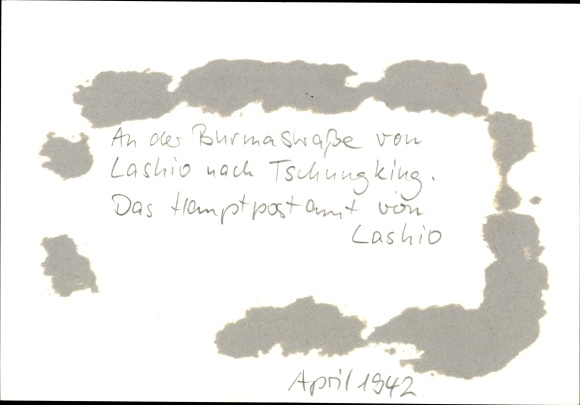 An der Burmastraße von
Lashio nach Tschungking.
Das Hauptpostamt von
Lashio
April 1942